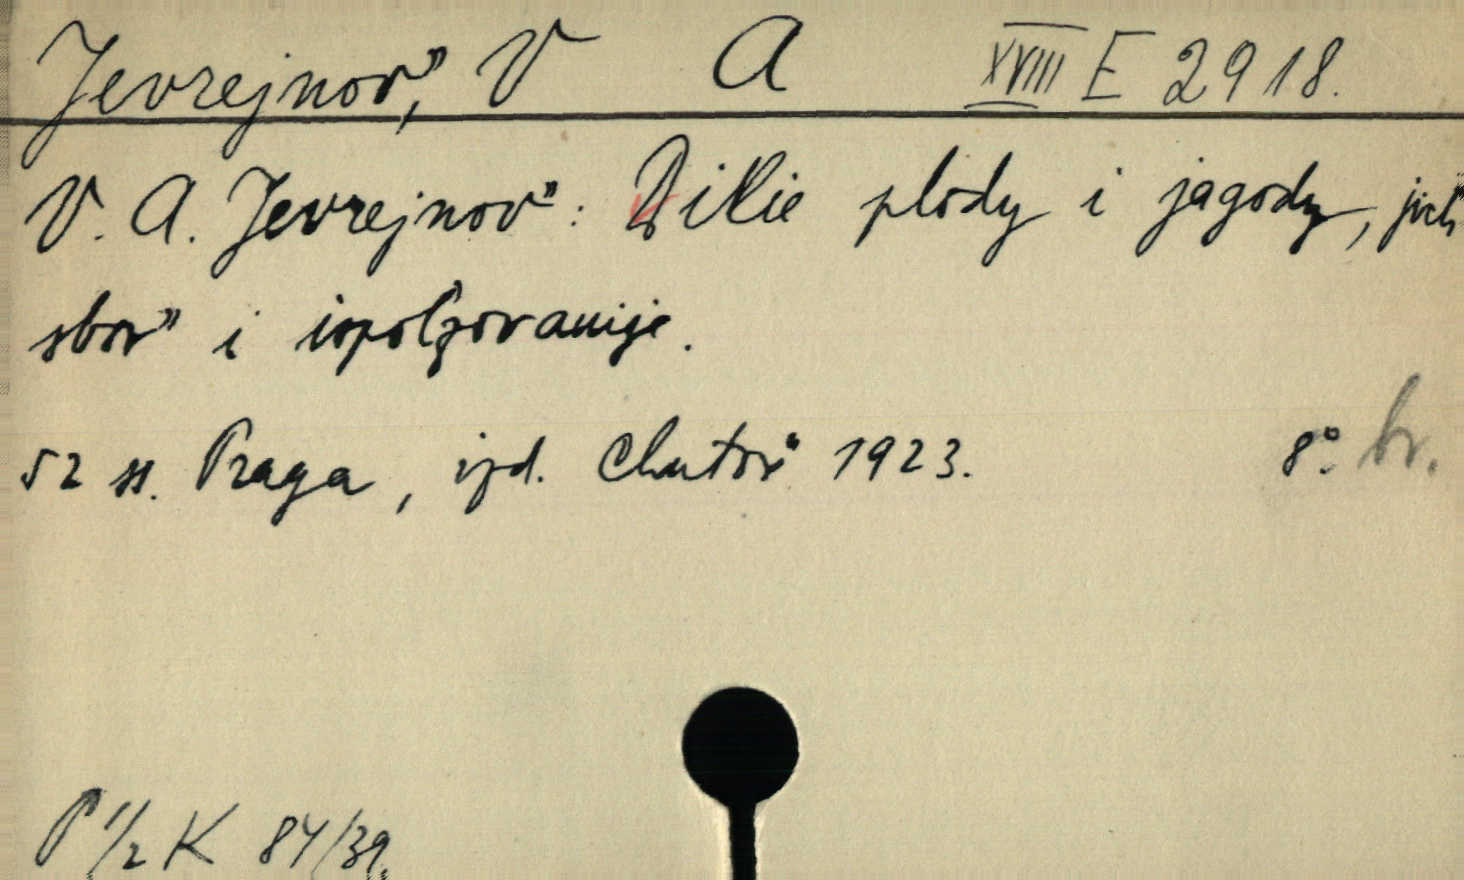 Jevrejnov", V A XVIII E 2918.
V. A. Jevrejnov": Dikie plody i jagody, jich"
sbor" i ispoľzovanije.
52 ss. Praga, izd. Chutor" 1923. 8°. br.
P 1/2 K 84/39.